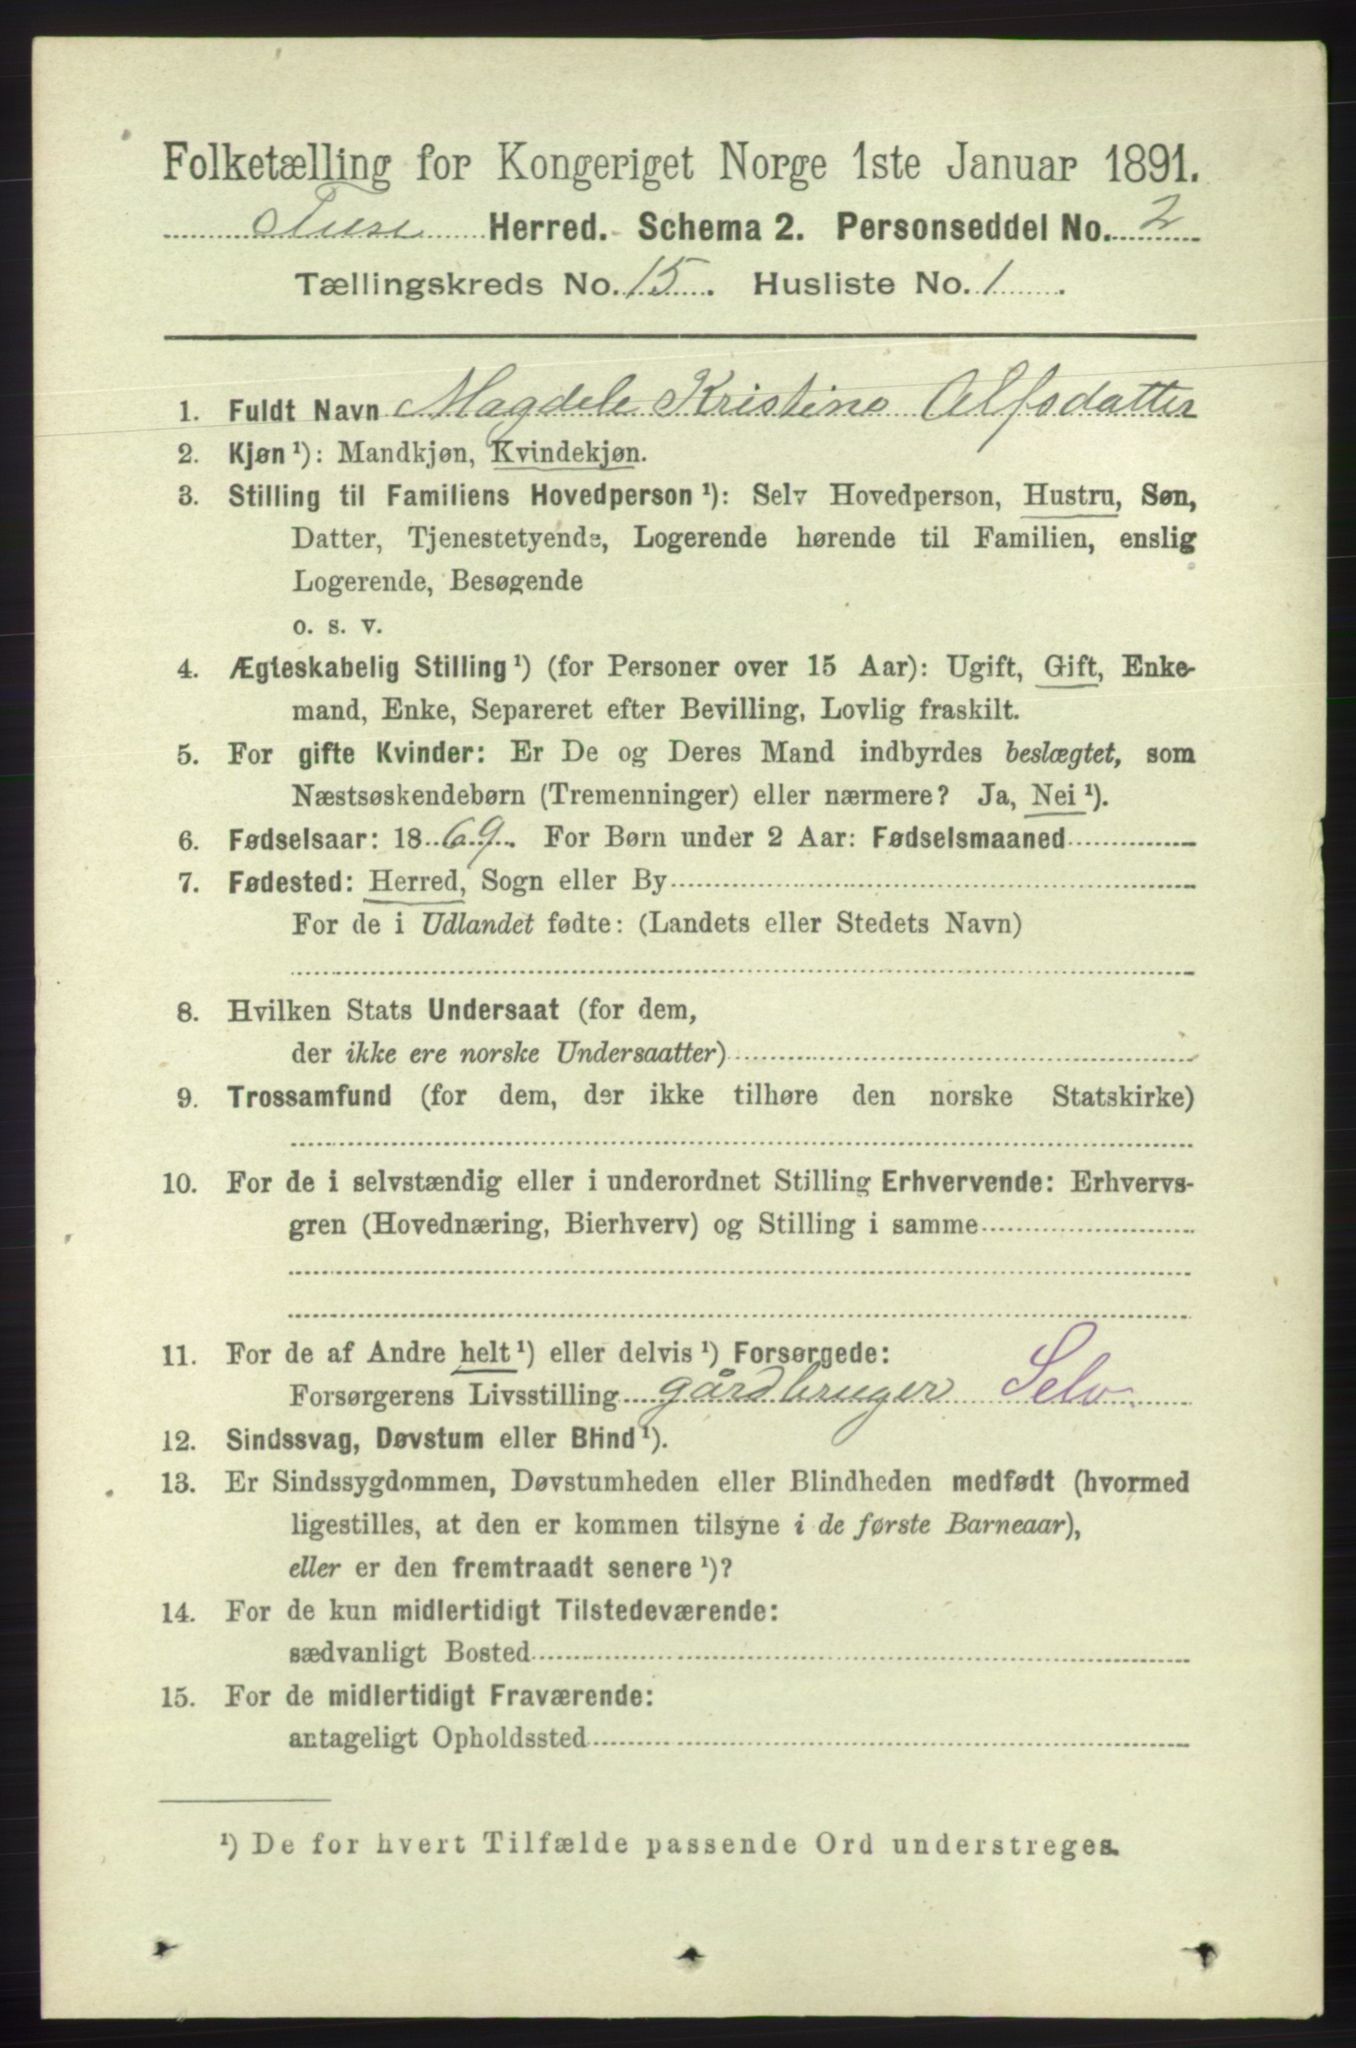 Folketælling for Kongeriget Norge 1ste Januar 1891.
Herred. Schema 2. Personseddel No. 2
Tællingskreds No. 15. Husliste No. 1.
1. Fuldt Navn Magdele Kristine Alfsdatter
2. Kjøn ¹): Mandkjøn, Kvindekjøn.
3. Stilling til Familiens Hovedperson ¹): Selv Hovedperson, Hustru, Søn,
Datter, Tjenestetyende, Logerende hørende til Familien, enslig
Logerende, Besøgende
o. s. v.
4. Ægteskabelig Stilling ¹) (for Personer over 15 Aar): Ugift, Gift, Enke-
mand, Enke, Separeret efter Bevilling, Lovlig fraskilt.
5. For gifte Kvinder: Er De og Deres Mand indbyrdes beslægtet, som
Næstsøskendebørn (Tremenninger) eller nærmere? Ja, Nei ¹).
6. Fødselsaar: 1869. For Børn under 2 Aar: Fødselsmaaned
7. Fødested: Herred, Sogn eller By
For de i Udlandet fødte: (Landets eller Stedets Navn)
8. Hvilken Stats Undersaat (for dem,
der ikke ere norske Undersaatter)
9. Trossamfund (for dem, der ikke tilhøre den norske Statskirke)
10. For de i selvstændig eller i underordnet Stilling Erhvervende: Erhvervs-
gren (Hovednæring, Bierhverv) og Stilling i samme
11. For de af Andre helt ¹) eller delvis ¹) Forsørgede:
Forsørgerens Livsstilling gårdbruger Selv
12. Sindssvag, Døvstum eller Blind ¹).
13. Er Sindssygdommen, Døvstumheden eller Blindheden medfødt (hvormed
ligestilles, at den er kommen tilsyne i de første Barneaar),
eller er den fremtraadt senere ¹)?
14. For de kun midlertidigt Tilstedeværende:
sædvanligt Bosted
15. For de midlertidigt Fraværende:
antageligt Opholdssted
¹) De for hvert Tilfælde passende Ord understreges.